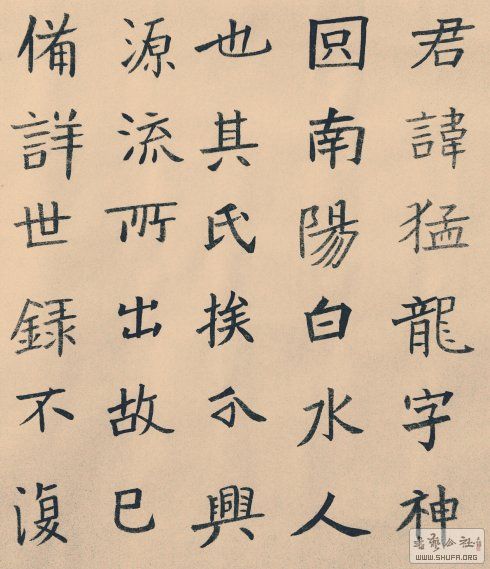 君諱猛龍字神
囧南陽白水人
也其氏族分興
源流所出故已
備詳世録不復
WWW.SHUFA.ORG